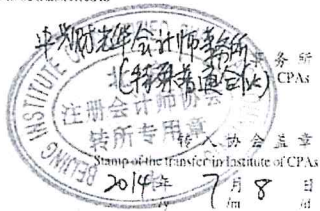 中兴财光华会计师事务所
(特殊普通合伙)
事务所
CPAs
BEIJING INSTITUTE OF
注册会计师协会
转所专用章
转入协会盖章
Stamp of the transfer-in Institute of CPAs
2014年 7月 8日
/y /m /d